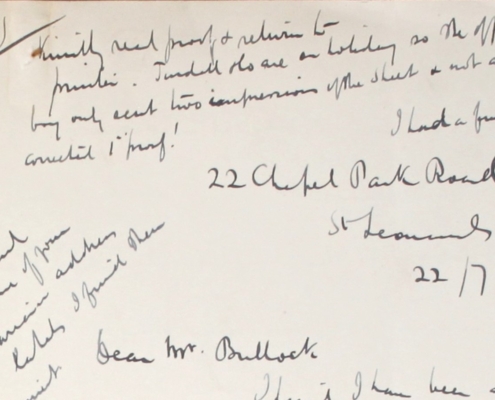 Kindly read proof & return to
printer. Tindall & Co are on holiday so the off
boy only sent two impressions of the sheet & not a
corrected 1st proof!
I had a
22 Chapel Park Road
St Leonards
22/7
of your
address
labels I find
Dear Mr. Bullock
I have been